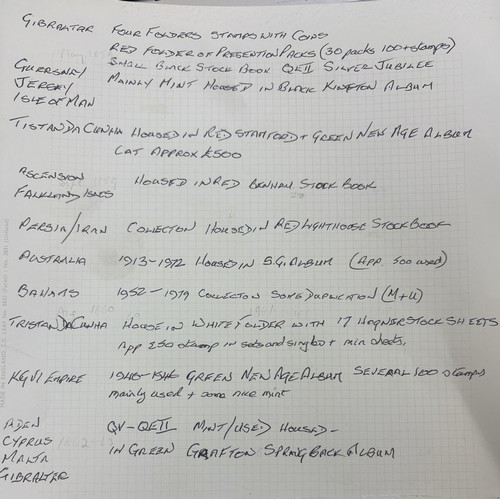 GIBRALTAR FOUR FOLDERS STAMPS WITH COINS
RED FOLDER OF PRESENTION PACKS (30 packs 100+stamps)
SMALL BLACK STOCK BOOK QEII SILVER JUBILEE
GUERSNEY
JERSEY MAINLY MINT HOUSED IN BLACK KINGSTON ALBUM
ISLE OF MAN
TISTAN DA CUNHA HOUSED IN RED STAMFORD + GREEN NEW AGE ALBUM
CAT APPROX £500
ASCENSION
HOUSED IN RED BENHAM STOCK BOOK
FALKLAND ISLES
PERSIA/IRAN COLLECTON HOUSED IN RED LIGHTHOUSE STOCK BOOK
AUSTRALIA 1913-1972 HOUSED IN S.G. ALBUM (APP. 500 used)
BAHAMAS 1952-1979 COLLECTON SOME DUPLICATION (M+U)
TRISTAN DA CUNHA HOUSE IN WHITE FOLDER WITH 17 HAGNER STOCK SHEETS
App 250 stamp in sets and singles + mini sheets.
KGVI EMPIRE 1946-1946 GREEN NEW AGE ALBUM SEVERAL 100 stamps
mainly used + some nice mint
ADEN QV-QEII MINT/USED HOUSED-
CYPRUS IN GREEN GRAFTON SPRING BACK ALBUM
MALTA
GIBRALTER